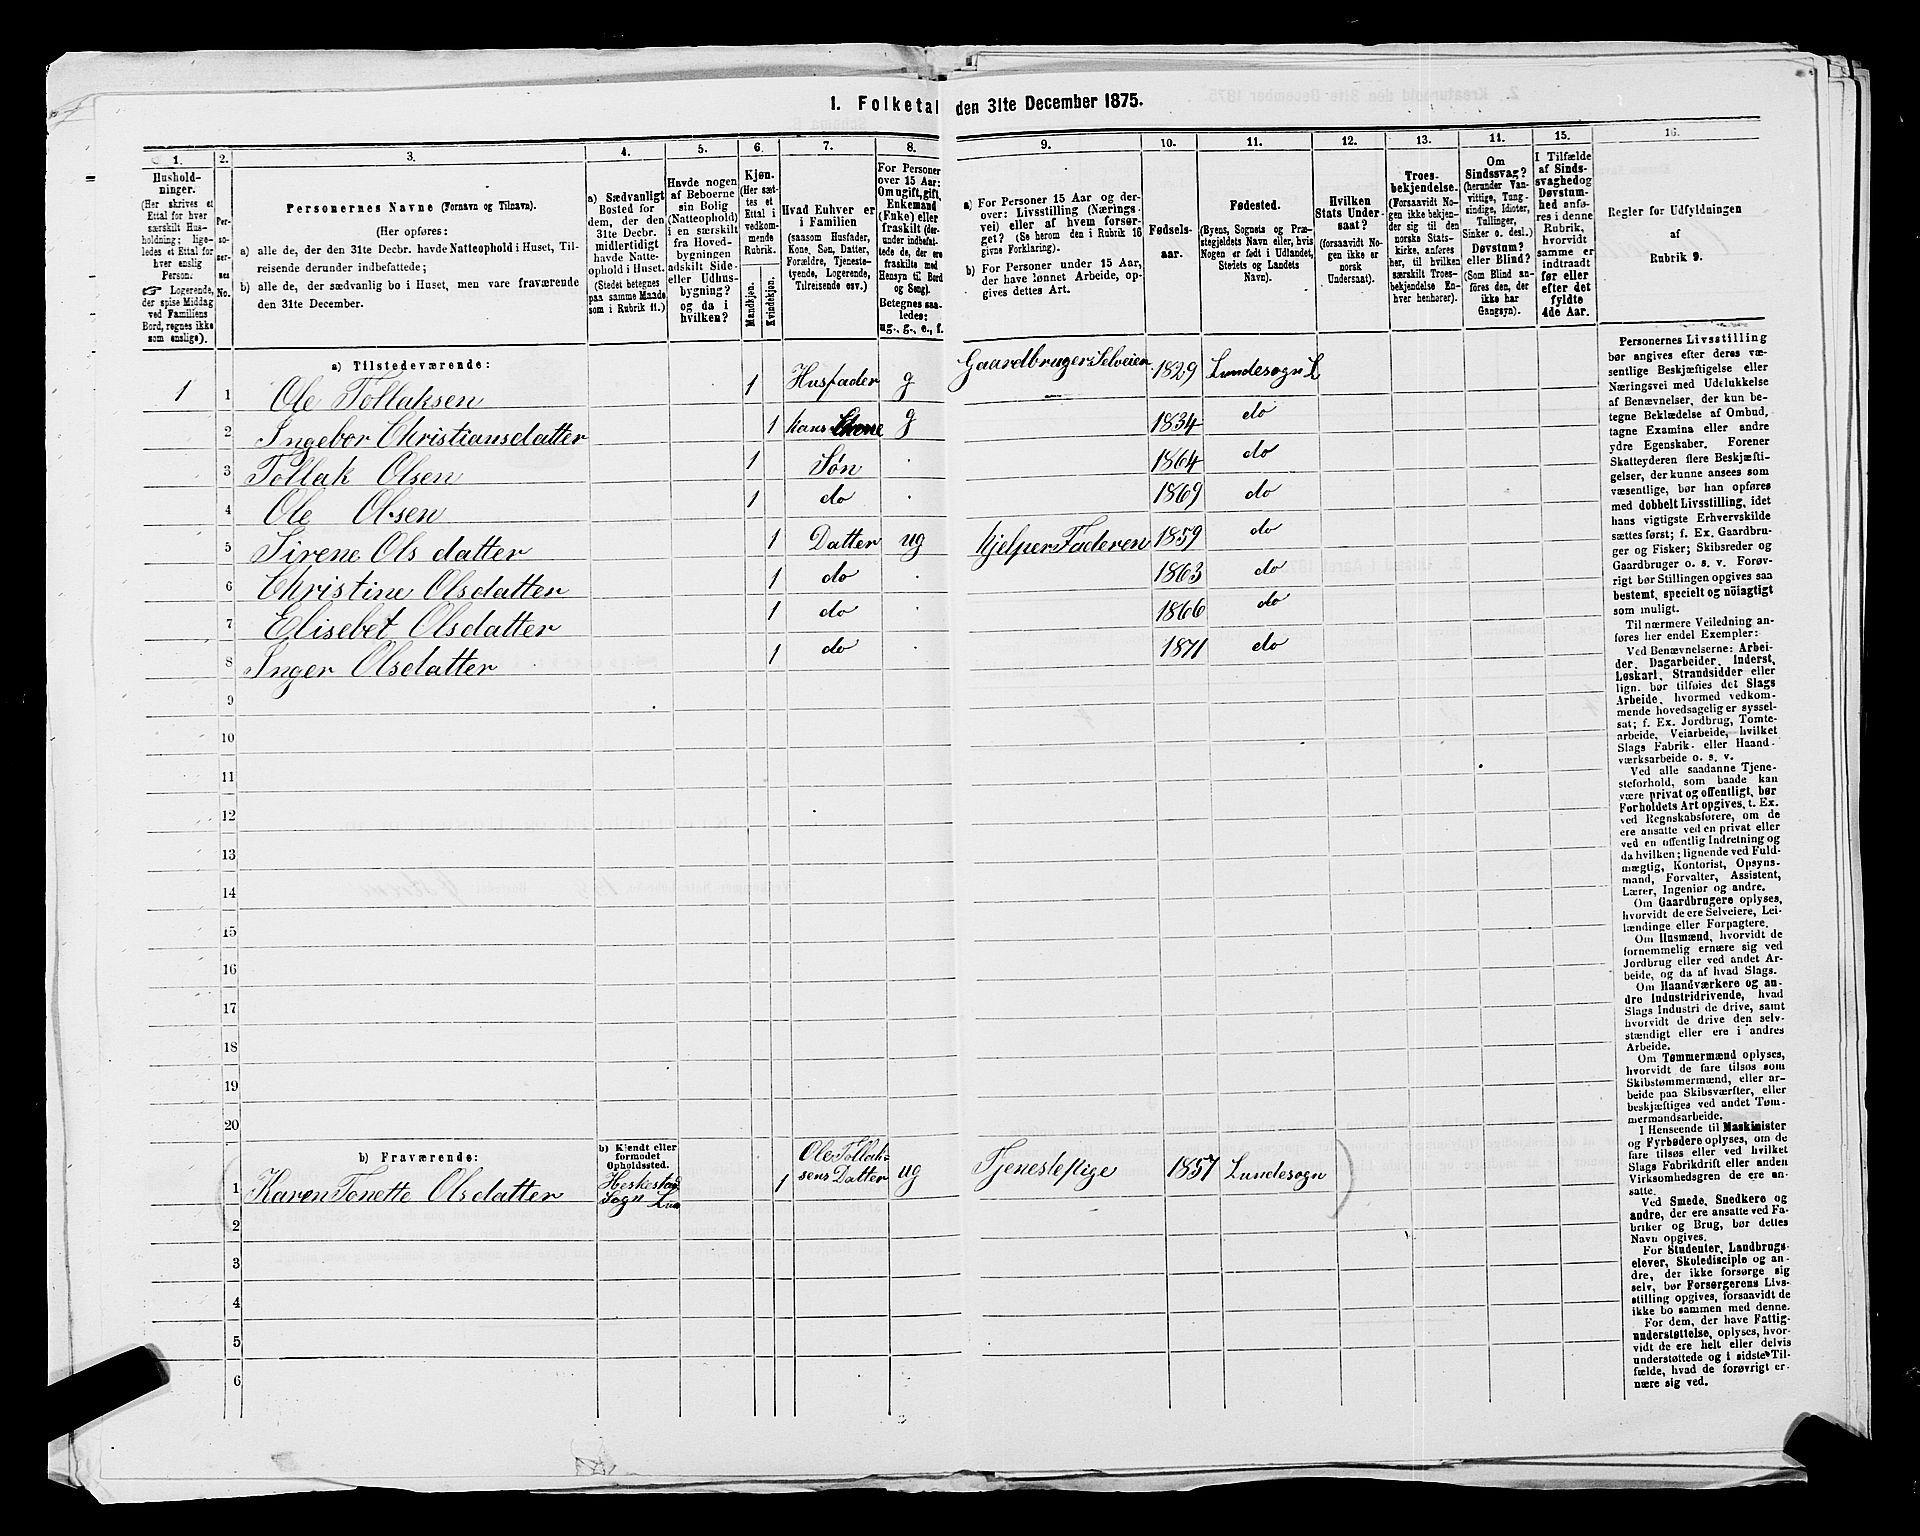 1. Folketal den 31te December 1875.
1.
Hushold-
ninger.
(Her skrives et
Ettal for hver
særskilt Hus-
holdning; lige-
ledes et Ettal for
hver enslig
Person.
☞ Logerende,
der spise Middag
ved Familiens
Bord, regnes ikke
som enslige).
2.
Per-
so-
ner-
nes
No.
3.
Personernes Navne (Fornavn og Tilnavn).
(Her opføres:
a) alle de, der den 31te Decbr. havde Natteophold i Huset, Til-
reisende derunder indbefattede;
b) alle de, der sædvanlig bo i Huset, men vare fraværende
den 31te December.
4.
a) Sædvanligt
Bosted for
dem, der den
31te Decbr.
midlertidigt
havde Natte-
ophold i Huset.
(Stedet betegnes
paa samme Maade
som i Rubrik 11.)
5.
Havde nogen
af Beboerne
sin Bolig
(Natteophold)
i en særskilt
fra Hoved-
bygningen
adskilt Side-
eller Udhus-
bygning?
og da i
hvilken?
6.
Kjøn.
(Her sæt-
tes et
Ettal i
vedkom-
mende
Rubrik.
Mandkjøn.
Kvindekjøn.
7.
Hvad Enhver er
i Familien
(saasom Husfader,
Kone, Søn, Datter,
Forældre, Tjeneste-
tyende, Logerende,
Tilreisende osv.)
8.
For Personer
over 15 Aar:
Om ugift, gift,
Enkemand
(Enke) eller
fraskilt (der-
under indbefat-
tede de, der ere
fraskilte med
Hensyn til Bord
og Seng).
Betegnes saa-
ledes:
ug., g., e., f.
9.
a) For Personer 15 Aar og der-
over: Livsstilling (Nærings-
vei) eller af hvem forsør-
get? (Se herom den i Rubrik 16
givne Forklaring).
b) For Personer under 15 Aar,
der have lønnet Arbeide, op-
gives dettes Art.
10.
Fødsels-
aar.
11.
Fødested.
(Byens, Sognets og Præ-
stegjeldets Navn eller, hvis
Nogen er født i Udlandet,
Stedets og Landets
Navn).
12.
Hvilken
Stats Under-
saat?
(forsaavidt No-
gen ikke er
norsk
Undersaat).
13.
Troes-
bekjendelse.
(Forsaavidt No-
gen ikke bekjen-
der sig til den
norske Stats-
kirke, anføres
her, til hvilken
særskilt Troes-
bekjendelse En-
hver henhører).
14.
Om
Sindssvag?
(herunder Van-
vittige, Tung-
sindige, Idioter,
Tullinger,
Sinker o. desl.).
Døvstum?
eller Blind?
(Som Blind an-
føres den, der
ikke har
Gangsyn).
15.
I Tilfælde
af Sinds-
svaghed og
Døvstum-
hed anfø-
res i denne
Rubrik,
hvorvidt
samme er
indtraadt
før eller
efter det
fyldte
4de Aar.
16.
Regler for Udfyldningen
af
Rubrik 9.
a) Tilstedeværende:
1 1 Ole Tollaksen 1 Husfader g Gaardbruger Selveier 1829 Lundesogn L
2 Ingebor Christiansdatter 1 hans Kone g 1834 do
3 Tollak Olsen 1 Søn 1864 do
4 Ole Olsen 1 do 1869 do
5 Sirene Olsdatter 1 Datter ug hjelper Faderen 1859 do
6 Christine Olsdatter 1 do 1863 do
7 Elisebet Olsdatter 1 do 1866 do
8 Inger Olsdatter 1 do 1871 do
9
10
11
12
13
14
15
16
17
18
19
20
b) Fraværende:
b) Kjendt eller
formodet
Opholdssted.
1 Karen Tonette Olsdatter Heskestad
Sogn Lun 1 Ole Tollak-
sens Datter ug Tjenestepige 1857 Lundesogn
2
3
4
5
6
Personernes Livsstilling
bør angives efter deres væ-
sentlige Beskjæftigelse eller
Næringsvei med Udelukkelse
af Benævnelser, der kun be-
tegne Beklædelse af Ombud,
tagne Examina eller andre
ydre Egenskaber. Forener
Skatteyderen flere Beskjæfti-
gelser, der kunne ansees som
væsentlige, bør han opføres
med dobbelt Livsstilling, idet
hans vigtigste Erhvervskilde
sættes først; f. Ex. Gaardbru-
ger og Fisker; Skibsreder og
Gaardbruger o. s. v. Forøv-
rigt bør Stillingen opgives saa
bestemt, specielt og nöiagtigt
som muligt.
Til nærmere Veiledning an-
føres her endel Exempler:
Ved Benævnelserne: Arbei-
der, Dagarbeider, Inderst,
Løskarl, Strandsidder eller
lign. bør tilføies det Slags
Arbeide, hvormed vedkom-
mende hovedsagelig er syssel-
sat; f. Ex. Jordbrug, Tomte-
arbeide, Veiarbeide, hvilket
Slags Fabrik- eller Haand-
værksarbeide o. s. v.
Ved alle saadanne Tjene-
steforhold, som baade kan
være privat og offentligt, bør
Forholdets Art opgives, t. Ex.
ved Regnskabsførere, om de
ere ansatte ved en privat eller
ved en offentlig Indretning og
da hvilken; lignende ved Fuld-
mægtig, Kontorist, Opsyns-
mand, Forvalter, Assistent,
Lærer, Ingeniør og andre.
Om Gaardbrugere oplyses,
hvorvidt de ere Selveiere, Lei-
lændinge eller Forpagtere.
Om Husmænd, hvorvidt de
fornemmelig ernære sig ved
Jordbrug eller ved andet Ar-
beide, og da af hvad Slags.
Om Haandværkere og an-
dre Industridrivende, hvad
Slags Industri de drive, samt
hvorvidt de drive den selv-
stændigt eller ere i andres
Arbeide.
Om Tømmermænd oplyses,
hvorvidt de fare tilsøs som
Skibstømmermænd, eller ar-
beide paa Skibsværfter, eller
beskjæftiges ved andet Tøm-
mermandsarbeide.
I Henseende til Maskinister
og Fyrbødere oplyses, om de
fare tilsøs eller ved hvilket
Slags Fabrikdrift eller anden
Virksomhedsgren de ere an-
satte.
Ved Smede, Snedkere og
andre, der ere ansatte ved Fa-
briker og Brug, bør dettes
Navn opgives.
For Studenter, Landbrugs-
elever, Skoledisciple og an-
dre, der ikke forsørge sig
selv, bør Forsørgerens Livs-
stilling opgives, forsaavidt de
ikke bo sammen med denne.
For dem, der have Fattig-
understøttelse, oplyses, hvor-
vidt de ere helt eller delvis
understøttede og i sidste Til-
fælde, hvad de forøvrigt er-
nære sig ved.